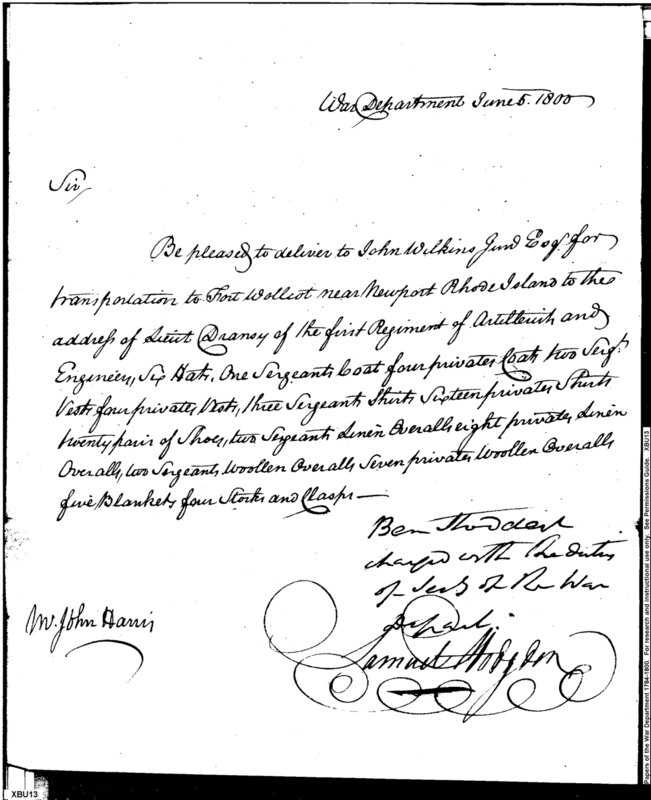 War Department June 5. 1800
Sir,
Be pleased to deliver to John Wilkins Junr Esqr for
transportation to Fort Wollcot near Newport Rhode Island to the
address of Lieut Dransy of the first Regiment of Artillerists and
Engineers, Six Hats, One Sergeants Coat four privates Coats two Sergts
Vests four privates Vests, three Sergeants Shirts Sixteen privates Shirts
twenty pair of Shoes, two Sergeants Linen Overalls eight privates Linen
Overalls, two Sergeants Woollen Overalls Seven privates Woollen Overalls
five Blankets four Stocks and Clasps —
Ben Stoddert
charged with the duties
of Secy of the War
Depart.
Samuel Hodgdon
Mr. John Harris
XBU13
Papers of the War Department 1784-1800. For research and instructional use only. See Permissions Guide. XBU13